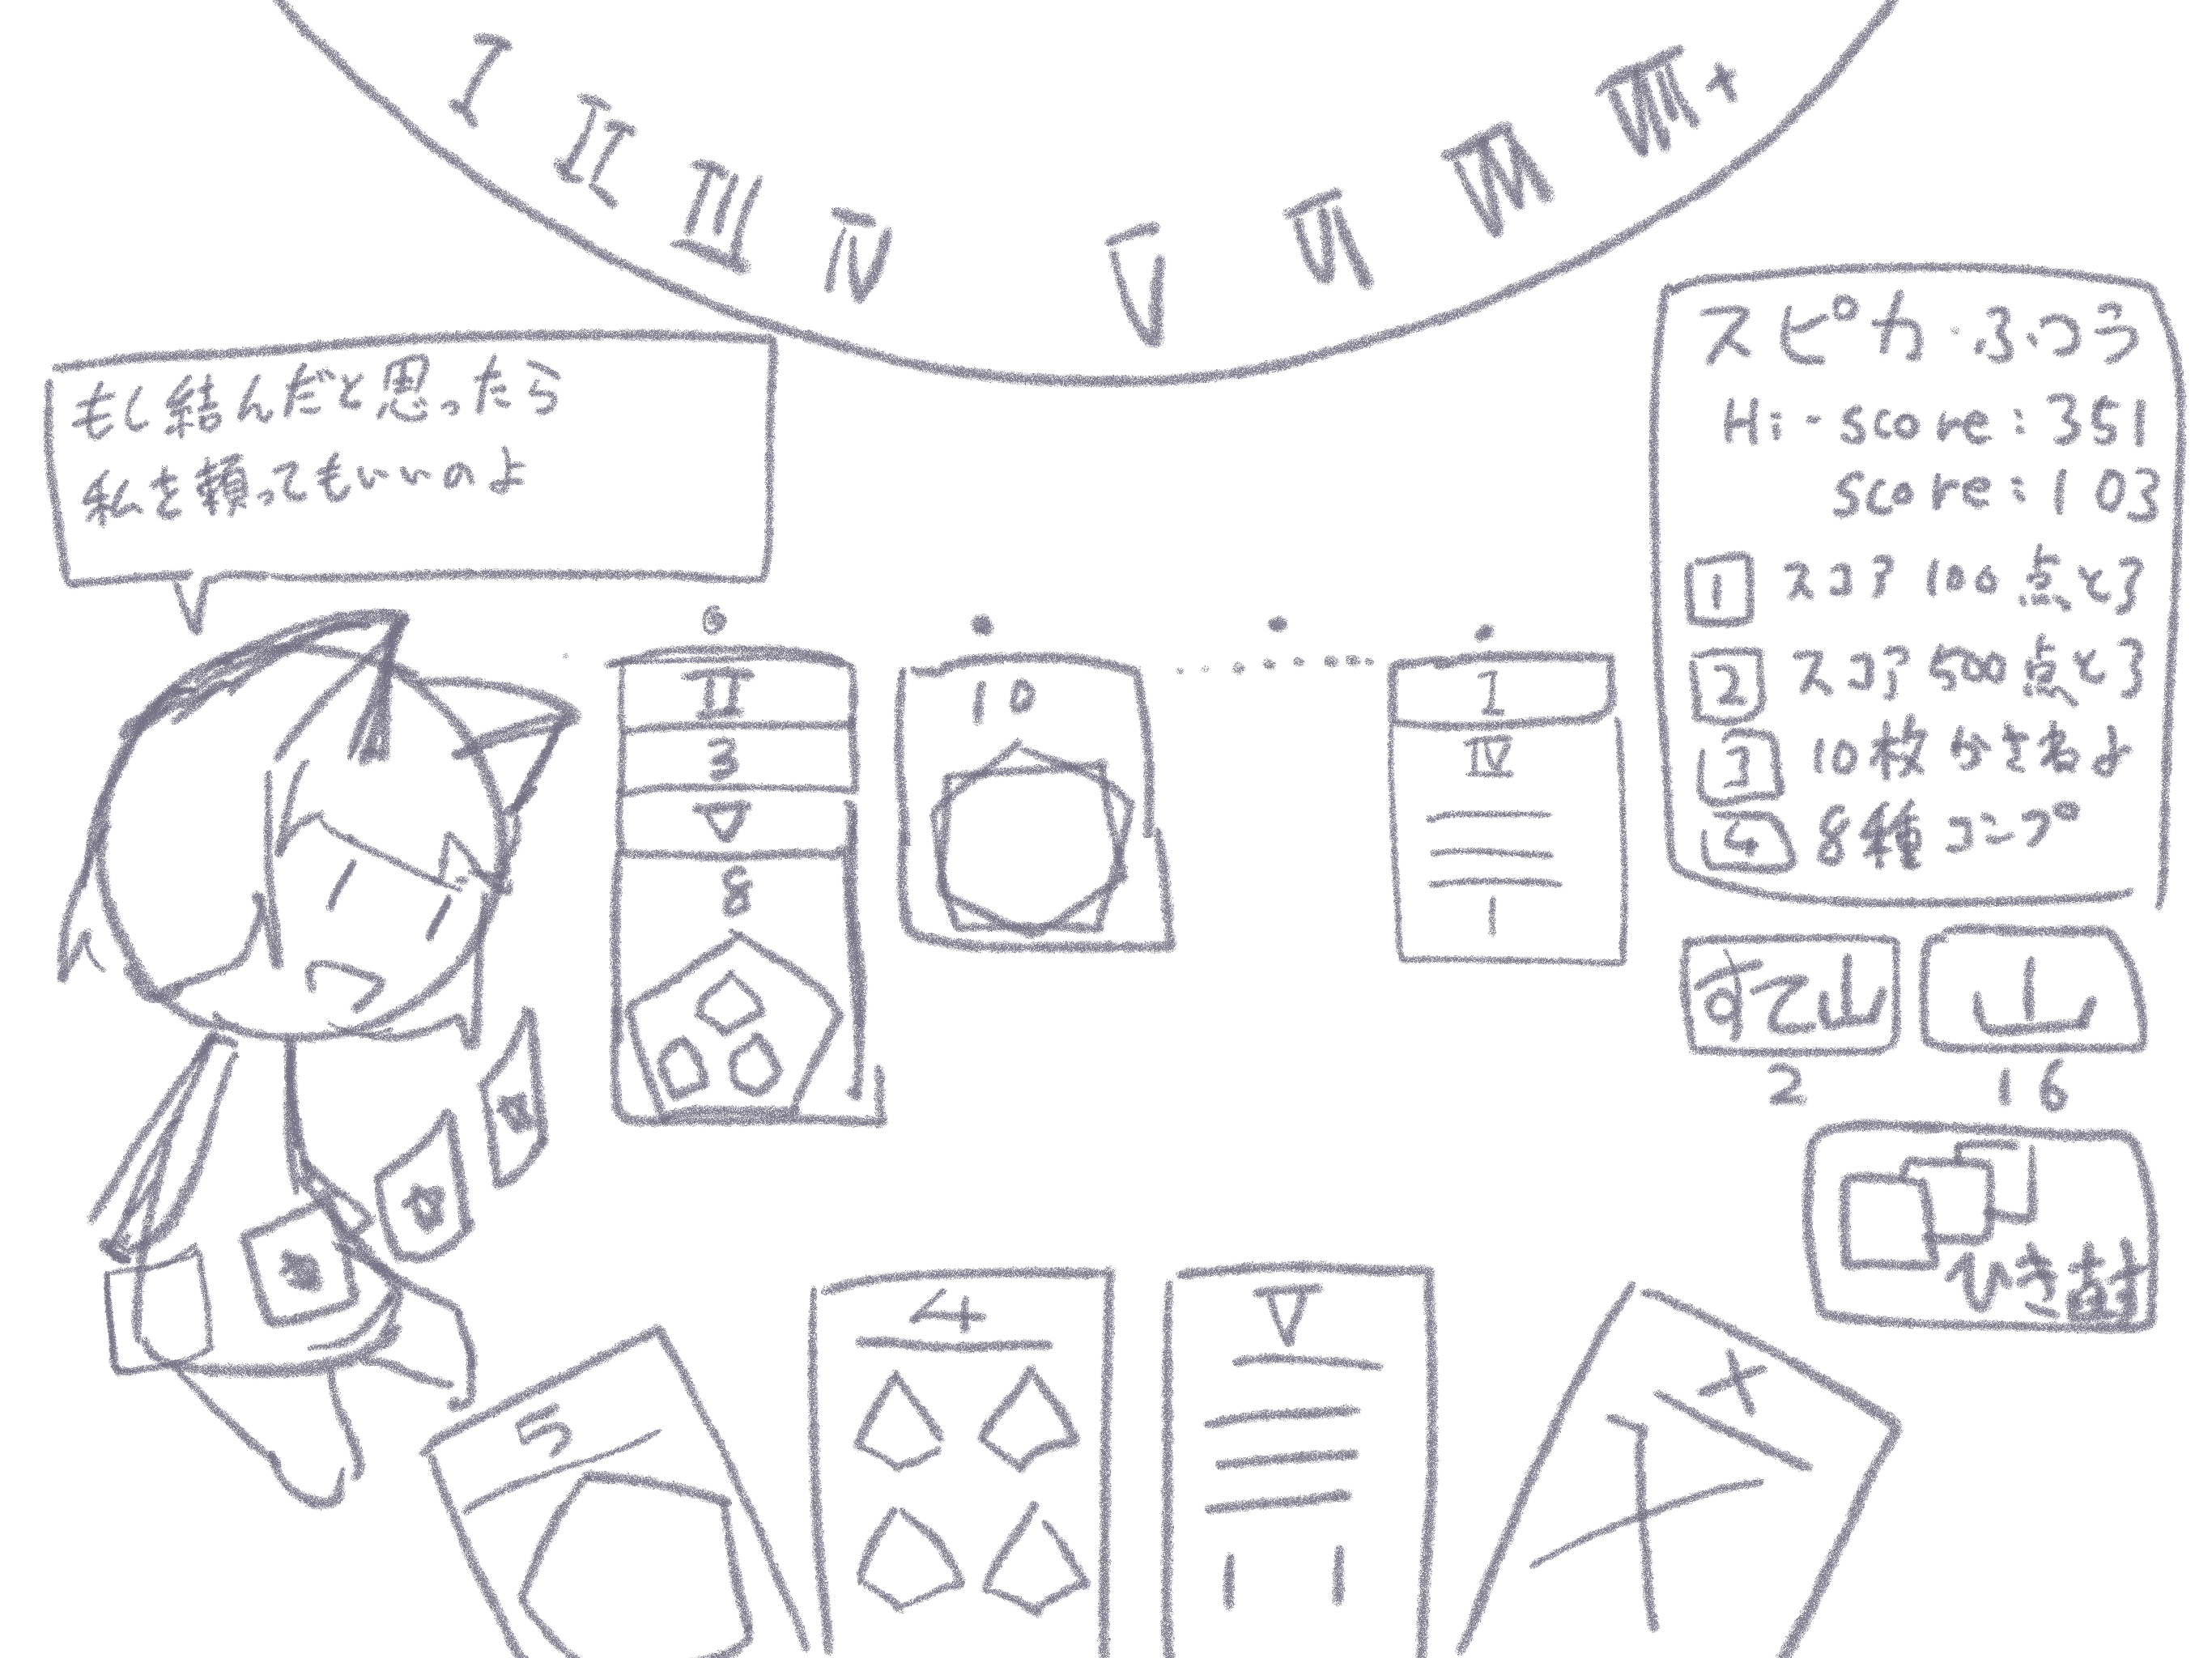 I II III IV V VI VII VIII+
もし結んだと思ったら
私を頼ってもいいのよ
スピカ・ふつう
Hi-score:351
score:103
1 スコア100点とる
2 スコア500点とる
3 10枚かさねよ
4 8種コンプ
II
3
V
8
10
I
IV
すて山
2
山
16
ひき直す
5
4
V
X